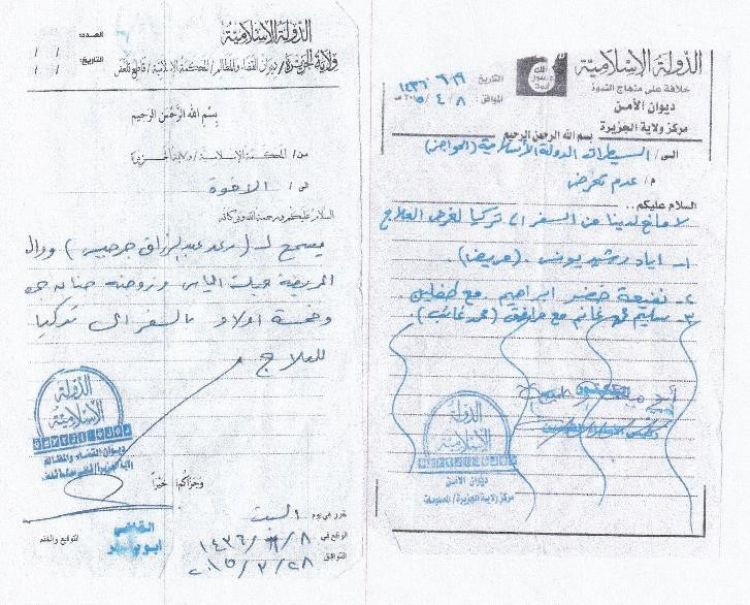 الدولة الإسلامية
العدد:
ولاية الجزيرة/ديوان القضاء والمظالم/المحكمة الإسلامية/قاطع تلعفر
التاريخ: / /
بسم الله الرحمن الرحيم
من/ المحكمة الإسلامية/ولاية الجزيرة
الى/ الاخوة
السلام عليكم ورحمة الله وبركاته
يسمح لـ (رعد عبد الرزاق
المريضة الياس وزوجته
وخمسة اولاد بالسفر الى تركيا
للعلاج
الدولة
الإسلامية
ديوان القضاء والمظالم
وجزاكم خيراً
القاضي
ابو
حرر في يوم السبت
الوقع في ٨/ /١٤٣٦
التوافق ٢٨/٢/٢٠١٥
التوقيع والختم
الدولة الإسلامية
خلافة على منهاج النبوة
ديوان الأمن
مركز ولاية الجزيرة
الله
رسول
محمد
التاريخ ١٩/٦/١٤٣٦
الموافق ٨/٤/٢٠١٥ مـ
بسم الله الرحمن الرحيم
الى/ السيطرات الدولة الأسلامية (الحواجز)
م/ عدم تعرض
السلام عليكم..
لا مانع لدينا من السفر الى تركيا لغرض العلاج
١- اياد رشيد يونس. (مريض).
٢- نفيعة خضر ابراهيم مع طفلين.
٣- سليم غانم مع مرافق (محمد غائب)
الدولة
الإسلامية
ديوان الأمن
مركز ولاية الجزيرة/المعلومات